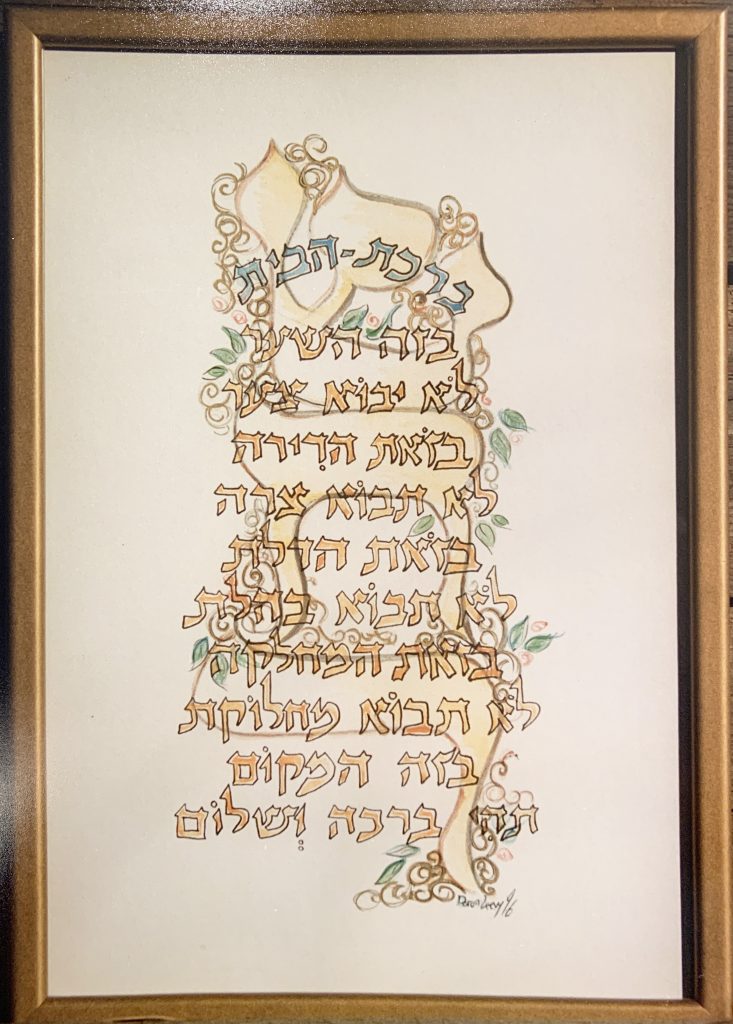 ברכת-הבית
בזה השער
לֹא יבוֹא צער
בזֹאת הדִירה
לֹא תבוֹא צרה
בזֹאת הדלת
לֹא תבוֹא בהלת
בזֹאת המחלקה
לֹא תבוֹא מחלוֹקת
בזה המקוֹם
תהִי ברכה וְשלוֹם